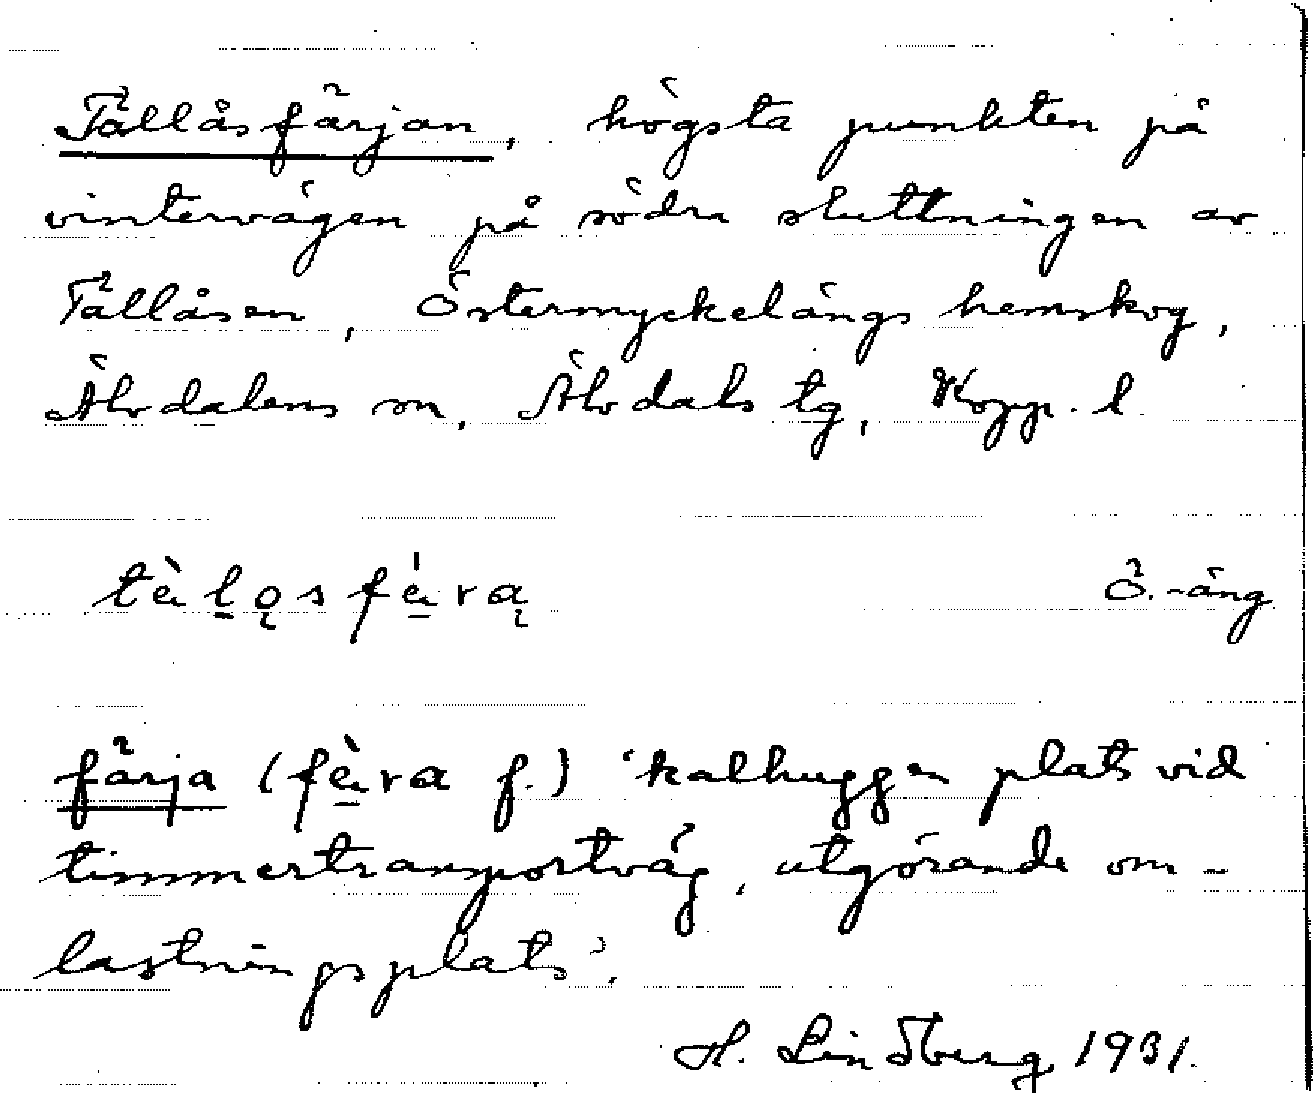 Tällåsfärjan, högsta punkten på
vintervägen på södra sluttningen av
Tällåsen, Östermyckelängs hemskog,
Älvdalens sn, Älvdals tg, Kopp. l.
tὲḷo̜sfὲ́ra̜
Ö.-äng
färja (fὲ̱ra f.) 'kalhuggen plats vid
timmertransportväg, utgörande om-
lastningsplats'.
H. Lindberg 1931.